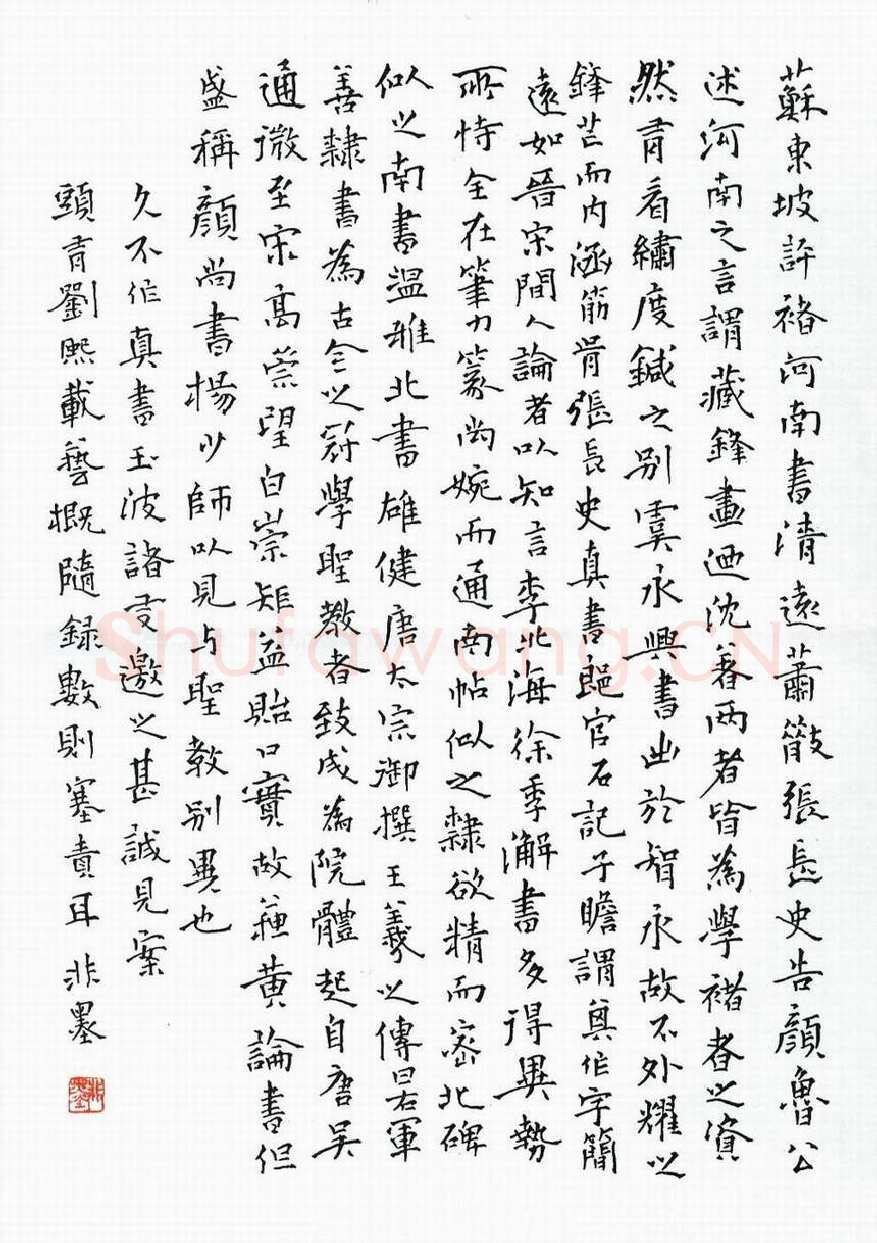 蘇東坡評褚河南書清遠蕭散張長史告顏魯公
述河南之言謂藏鋒畫迺沈著兩者皆為學褚者之資
然有看繡度鍼之別虞永興書出於智永故不外耀
鋒芒而內涵筋骨張長史真書郎官石記子瞻謂作字簡
遠如晉宋間人論者以知言李北海徐季海書多得異勢
所恃全在筆力篆尚婉而通南帖似之隸欲精而密北碑
似之南書溫雅北書雄健唐太宗御撰王羲之傳曰右軍
善隸書為古今之冠學聖教者致成為院體起自唐吳
通微至宋高崇望白崇矩益貽口實故蘇黃論書但
盛稱顏尚書楊少師以見与聖教別異也
久不作真書玉波諸友邀之甚誠見案
頭有劉熙載藝概隨錄數則塞責耳 非墨
Shufawang.CN